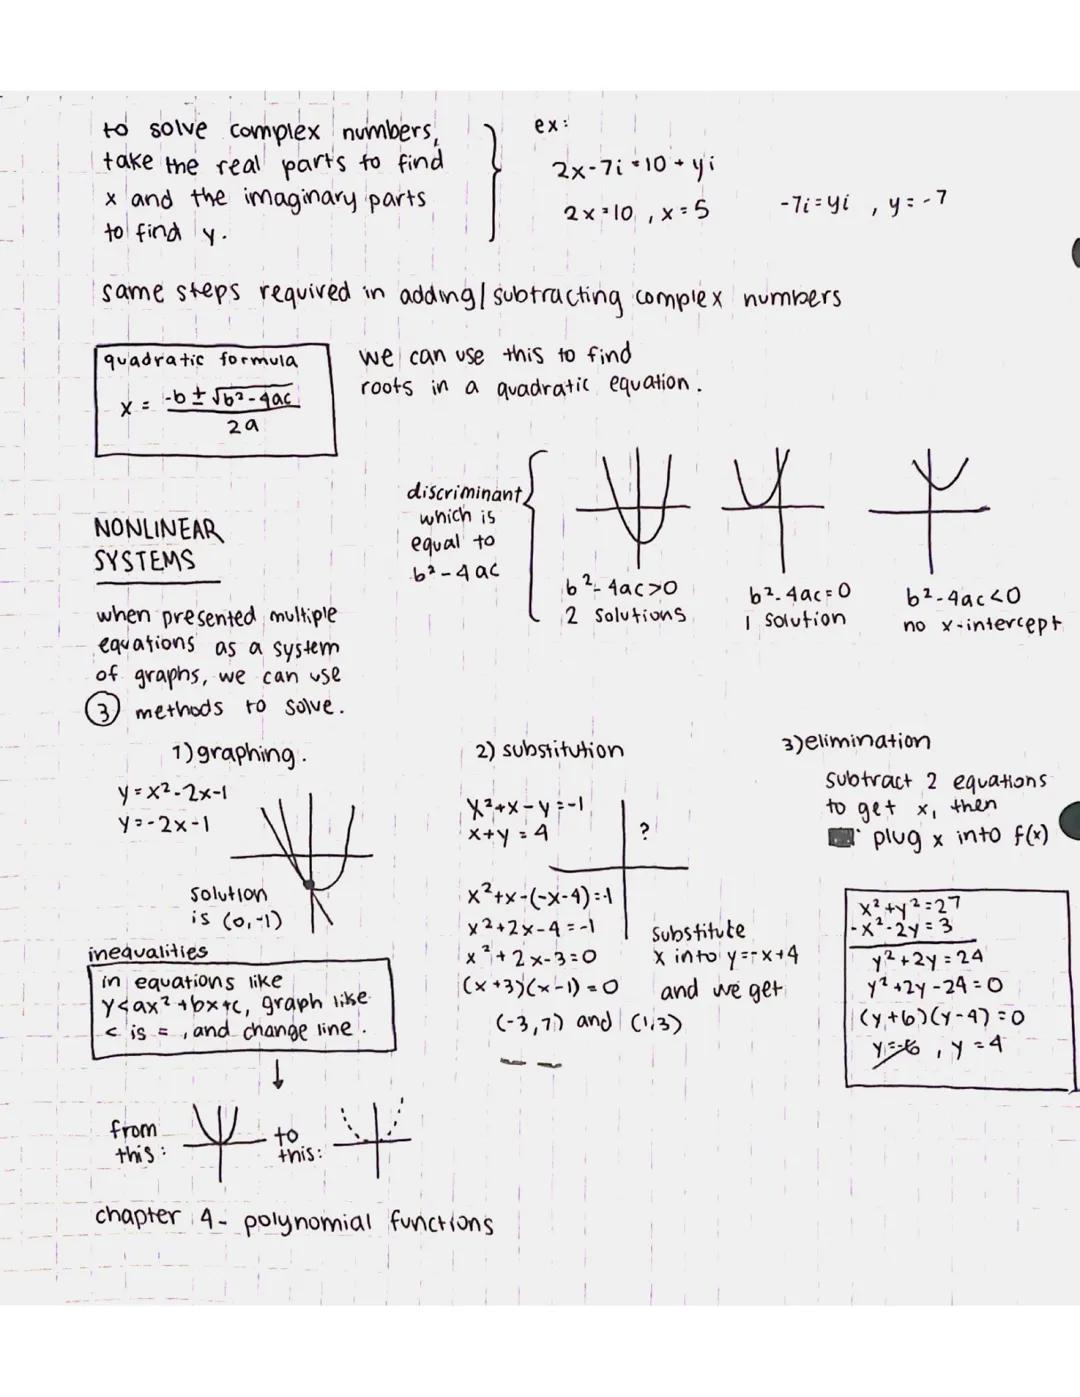 to solve complex numbers,
take the real parts to find
x and the imaginary parts
to find y.
ex:
2x-7i=10+yi
2x=10, x=5
-7i=yi, y=-7
same steps required in adding/subtracting complex numbers
quadratic formula
x = -b±√b²-4ac
2a
we can use this to find
roots in a quadratic equation.
discriminant,
which is
equal to
b²-4ac
b²-4ac>0
2 solutions
b²-4ac=0
1 solution
b²-4ac<0
no x-intercept
NONLINEAR
SYSTEMS
when presented multiple
equations as a system
of graphs, we can use
3 methods to solve.
1) graphing.
y=x²-2x-1
y=-2x-1
solution
is (0,-1)
inequalities
in equations like
y<ax²+bx+c, graph like
< is =, and change line.
from
this:
to
this:
2) substitution
x²+x-y=-1
x+y=4
?
x²+x-(-x-4)=-1
x²+2x-4=-1
x²+2x-3=0
(x+3)(x-1)=0
substitute
x into y=-x+4
and we get
(-3,7) and (1,3)
3) elimination
subtract 2 equations
to get x, then
plug x into f(x)
x²+y²=27
-x²-2y=3
y²+2y=24
y²+2y-24=0
(y+6)(y-4)=0
y=-6, y=4
chapter 4- polynomial functions